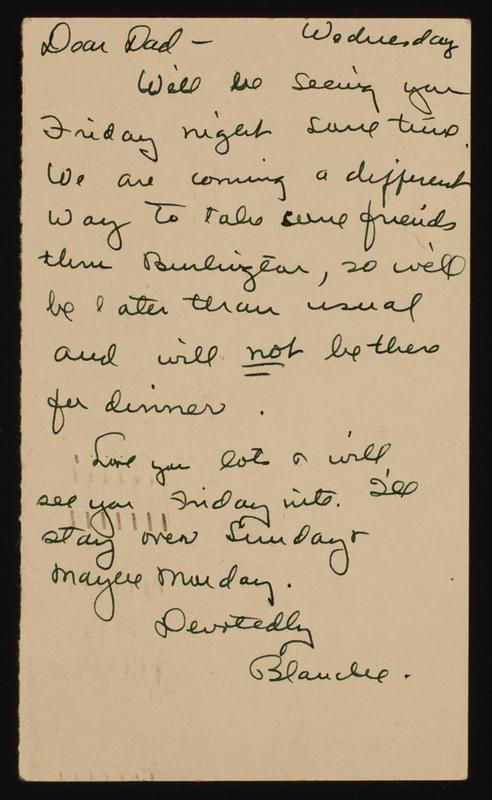 Dear Dad — Wednesday
We'll be seeing you
Friday night some time.
We are coming a different
way to take some friends
thru Burlington, so we'll
be later than usual
and will not be there
for dinner.
Love you lots & will
see you Friday nite. I'll
stay over Sunday &
maybe Monday.
Devotedly
Blanche.